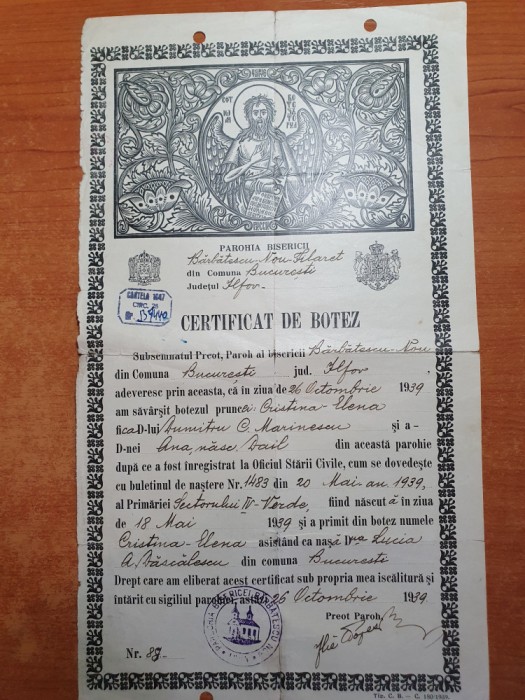 PAROHIA BISERICII
Bărbătescu-Nou-Filaret
din Comuna Bucuresti
Județul Ilfov-
CARTELA 1947
CIRC. 26
Nr.
CERTIFICAT DE BOTEZ
Subsemnatul Preot, Paroh al bisericii Bărbătescu-Nou
din Comuna Bucuresti jud. Ilfov,
adeveresc prin aceasta, că în ziua de 26 Octombrie 1939
am săvârșit botezul pruncei Cristina-Elena
fica D-lui Dumitru C. Marinescu și a-
D-nei Ana, násc. Dail din această parohie
după ce a fost înregistrat la Oficiul Stării Civile, cum se dovedește
cu buletinul de naștere Nr. 1483 din 20 Mai-an. 1939,
al Primăriei Sectorului IV-Verde, fiind născut ă în ziua
de 18 Mai 1939 și a primit din botez numele
Cristina-Elena asistând ca nașă D-ra Lucia
A. Băscălescu din comuna Bucuresti
Drept care am eliberat acest certificat sub propria mea iscălitură și
întărit cu sigiliul parohiei, astăzi 26 Octombrie 1939
Preot Paroh,
PAROHIA BISERICEI BĂRBĂTESCU NOU
Nr. 87.
Tip. C. B. – C. 180/1939.